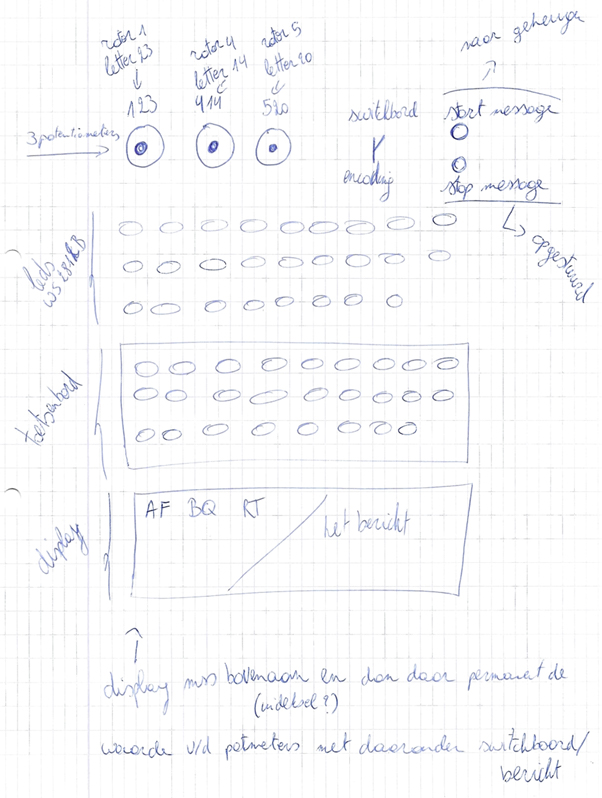 rotor 1
letter 23
rotor 4
letter 14
rotor 5
letter 20
naar geheugen
123
414
520
switchbord
start message
3 potentiometers
encoding
stop message
opgestuurd
leds
WS2812B
toetsenbord
display
AF BQ RT
het bericht
display mss bovenaan en dan daar permanent de
(in deksel?)
waarde v/d potmeters met daaronder switchboard/
bericht